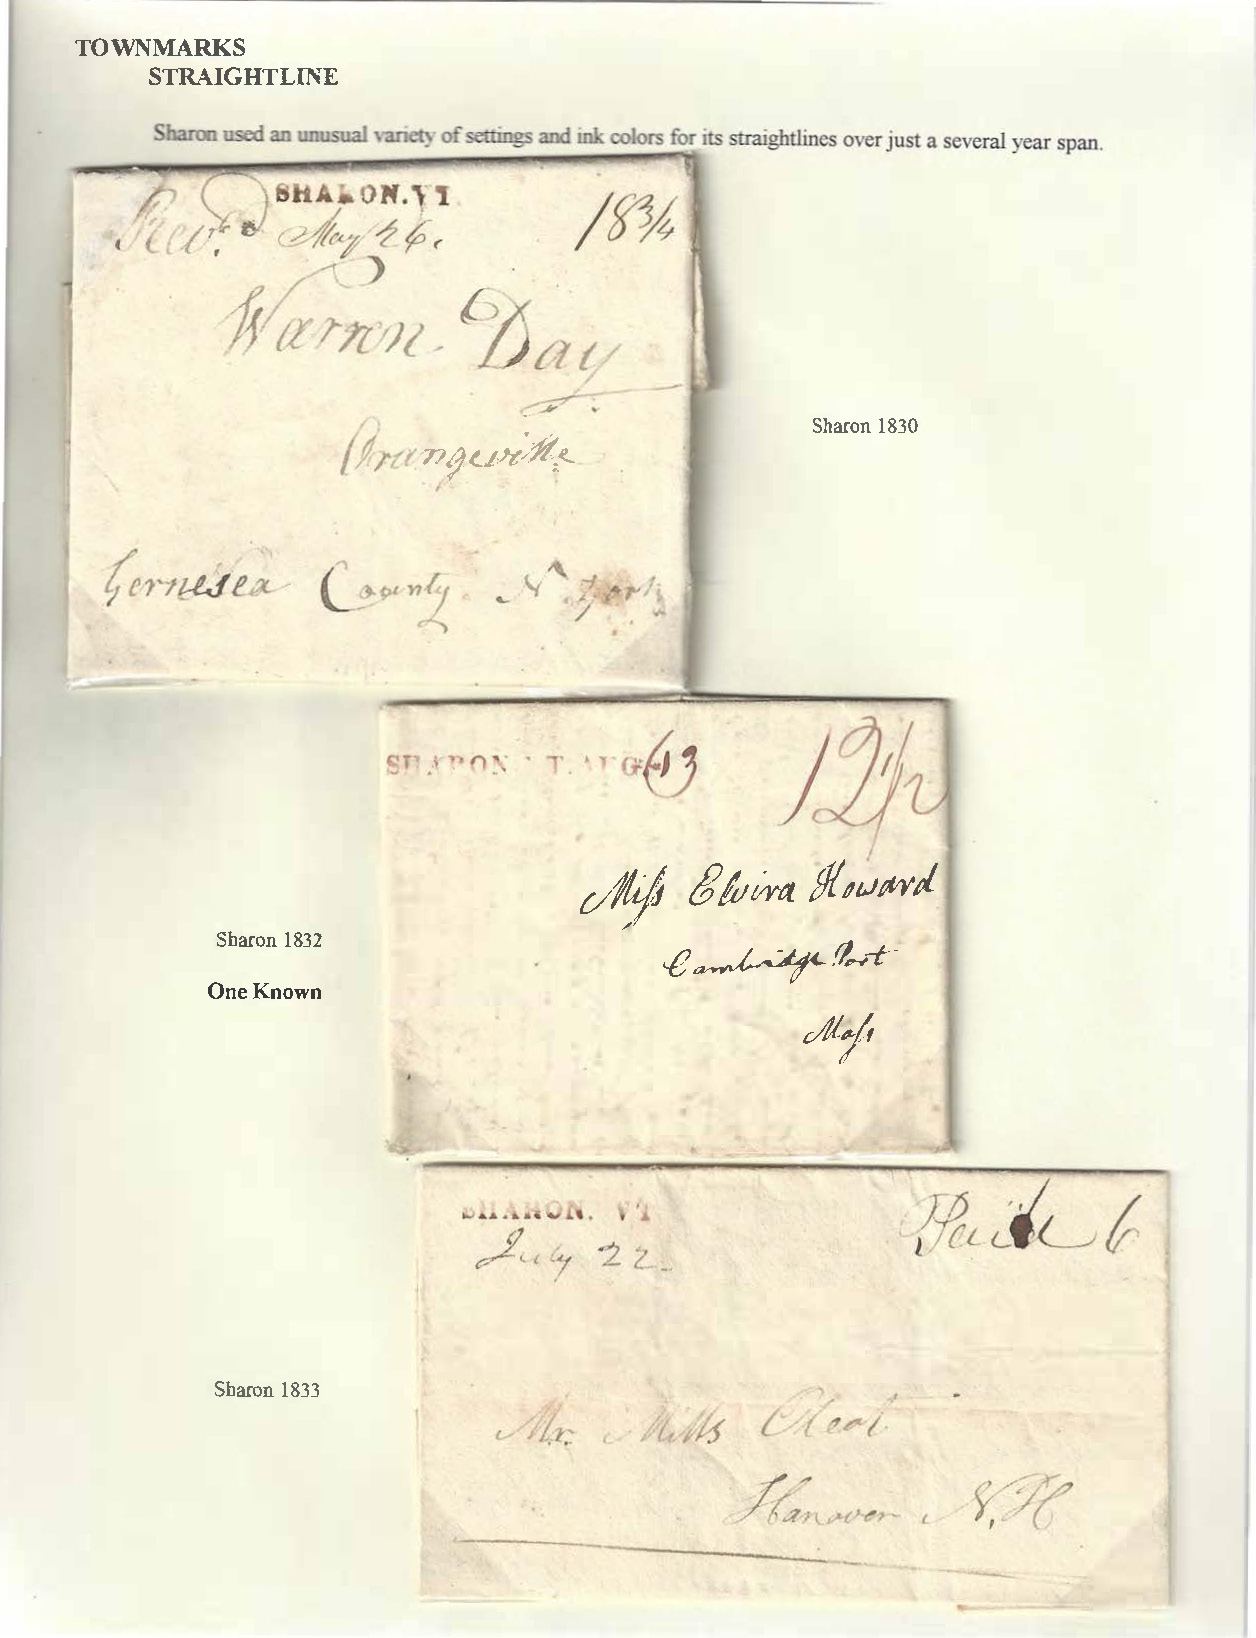 TOWNMARKS
STRAIGHTLINE
Sharon used an unusual variety of settings and ink colors for its straightlines over just a several year span.
SHARON. VT
Revd. May 26.
18 3/4
Warren Day
Orangeville
Gernesea County N. York
Sharon 1830
SHARON VT. AUG 13
12 1/2
Miſs Elvira Howard
Cambridge Port
Maſs
Sharon 1832
One Known
SHARON. VT
July 22
Paid 6
Sharon 1833
Mr. Mills
Hanover N. H